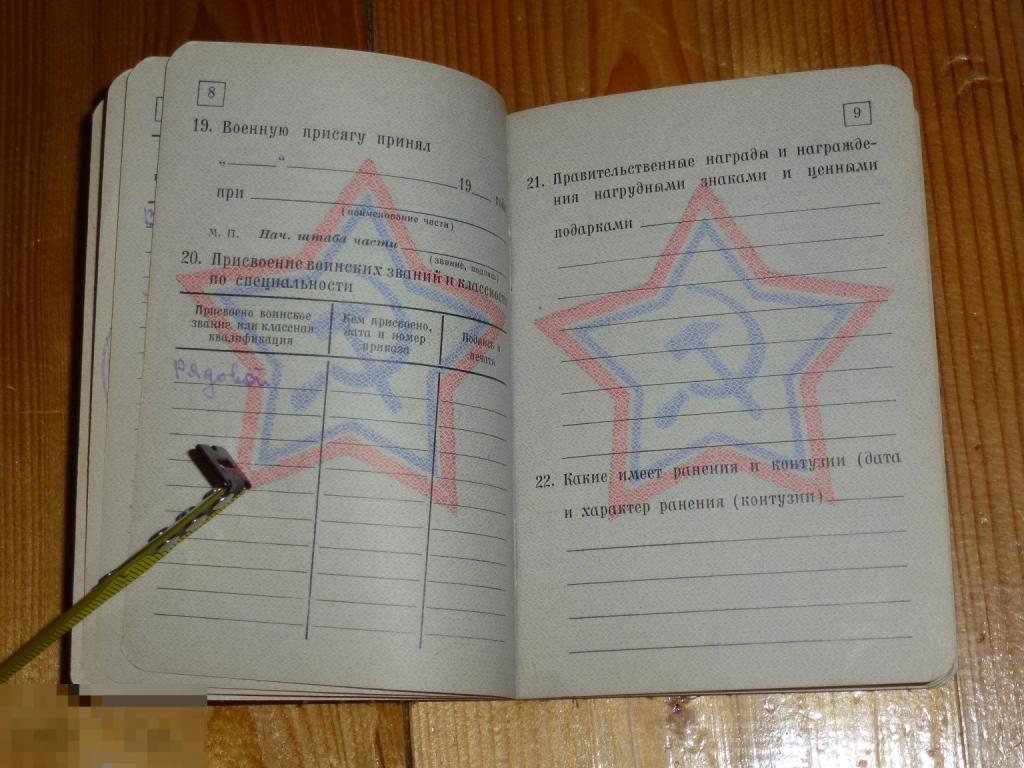 8
19. Военную присягу принял
„ “ 19 года
при
(наименование части)
М. П. Нач. штаба части
(звание, подпись)
20. Присвоение воинских званий и классности
по специальности
Присвоено воинское
звание или классная
квалификация
Кем присвоено,
дата и номер
приказа
Подпись и
печать
Рядовой
9
21. Правительственные награды и награжде-
ния нагрудными знаками и ценными
подарками
22. Какие имеет ранения и контузии (дата
и характер ранения (контузии)